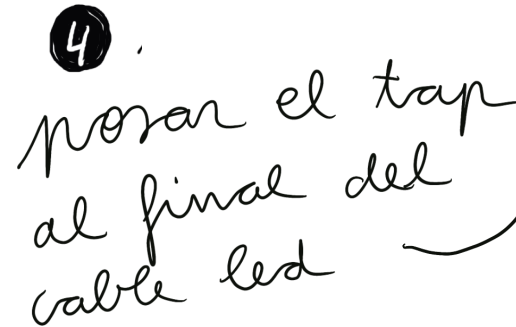 4
posar el tap
al final del
cable led